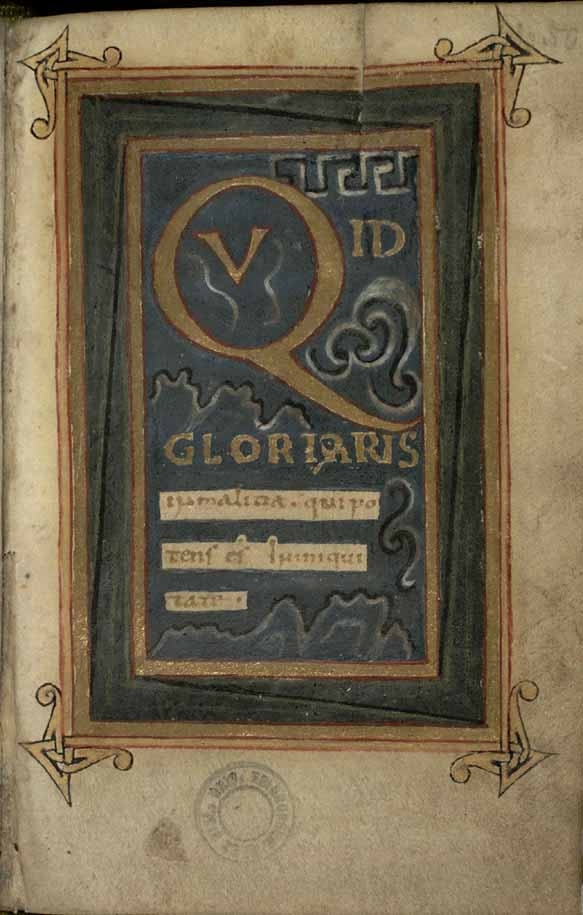 QVID
GLORIARIS
in malitia . qui po
tens es In iniqui
tate .